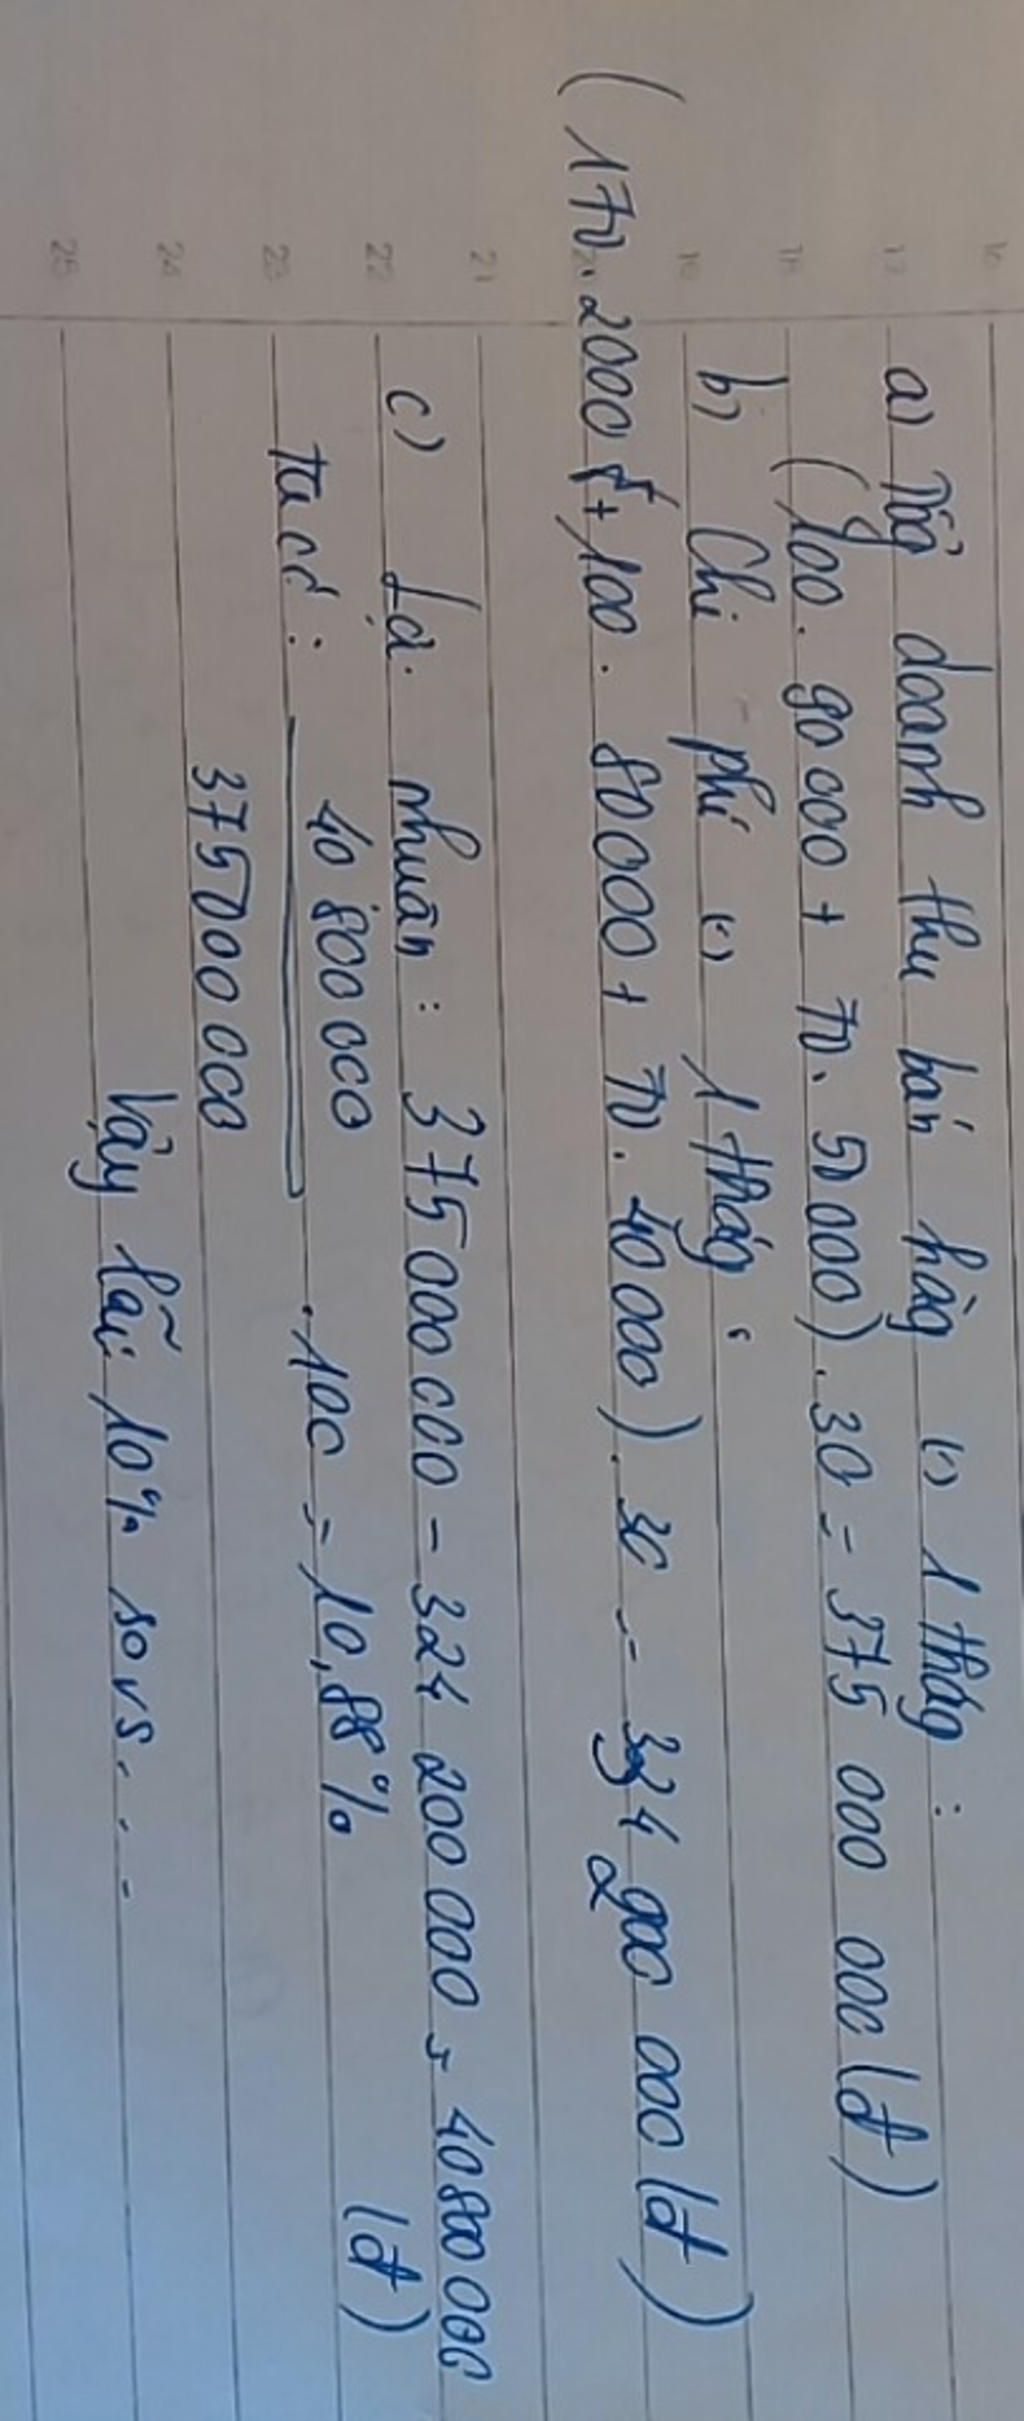 16
17
a) Tổg doanh thu bán hàg (') 1 thág :
18
(100. 90 000 + 70. 50 000). 30 = 375 000 000 (đ)
19
b) Chi phí (') 1 thág :
(170. 2000 + 100. 80000 + 70. 40 000). 30 = 334 200 000 (đ)
21
c) Lợi nhuận : 375 000 000 - 334 200 000 = 40 800 000 (đ)
22
Ta có : 40 800 000 / 375 000 000 . 100 = 10,88 %
23
24
Vậy lãi 10% so vs . . .
25